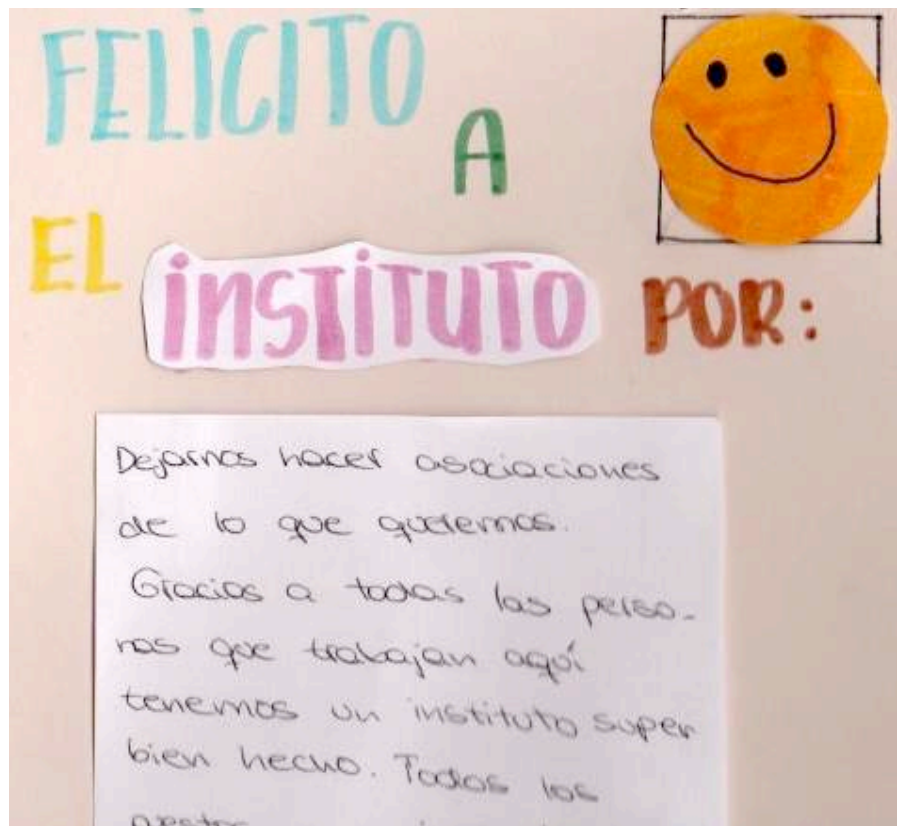 FELICITO
A
EL INSTITUTO POR:
Dejarnos hacer asociaciones
de lo que queremos.
Gracias a todas las perso-
nas que trabajan aquí
tenemos un instituto super
bien hecho. Todos los